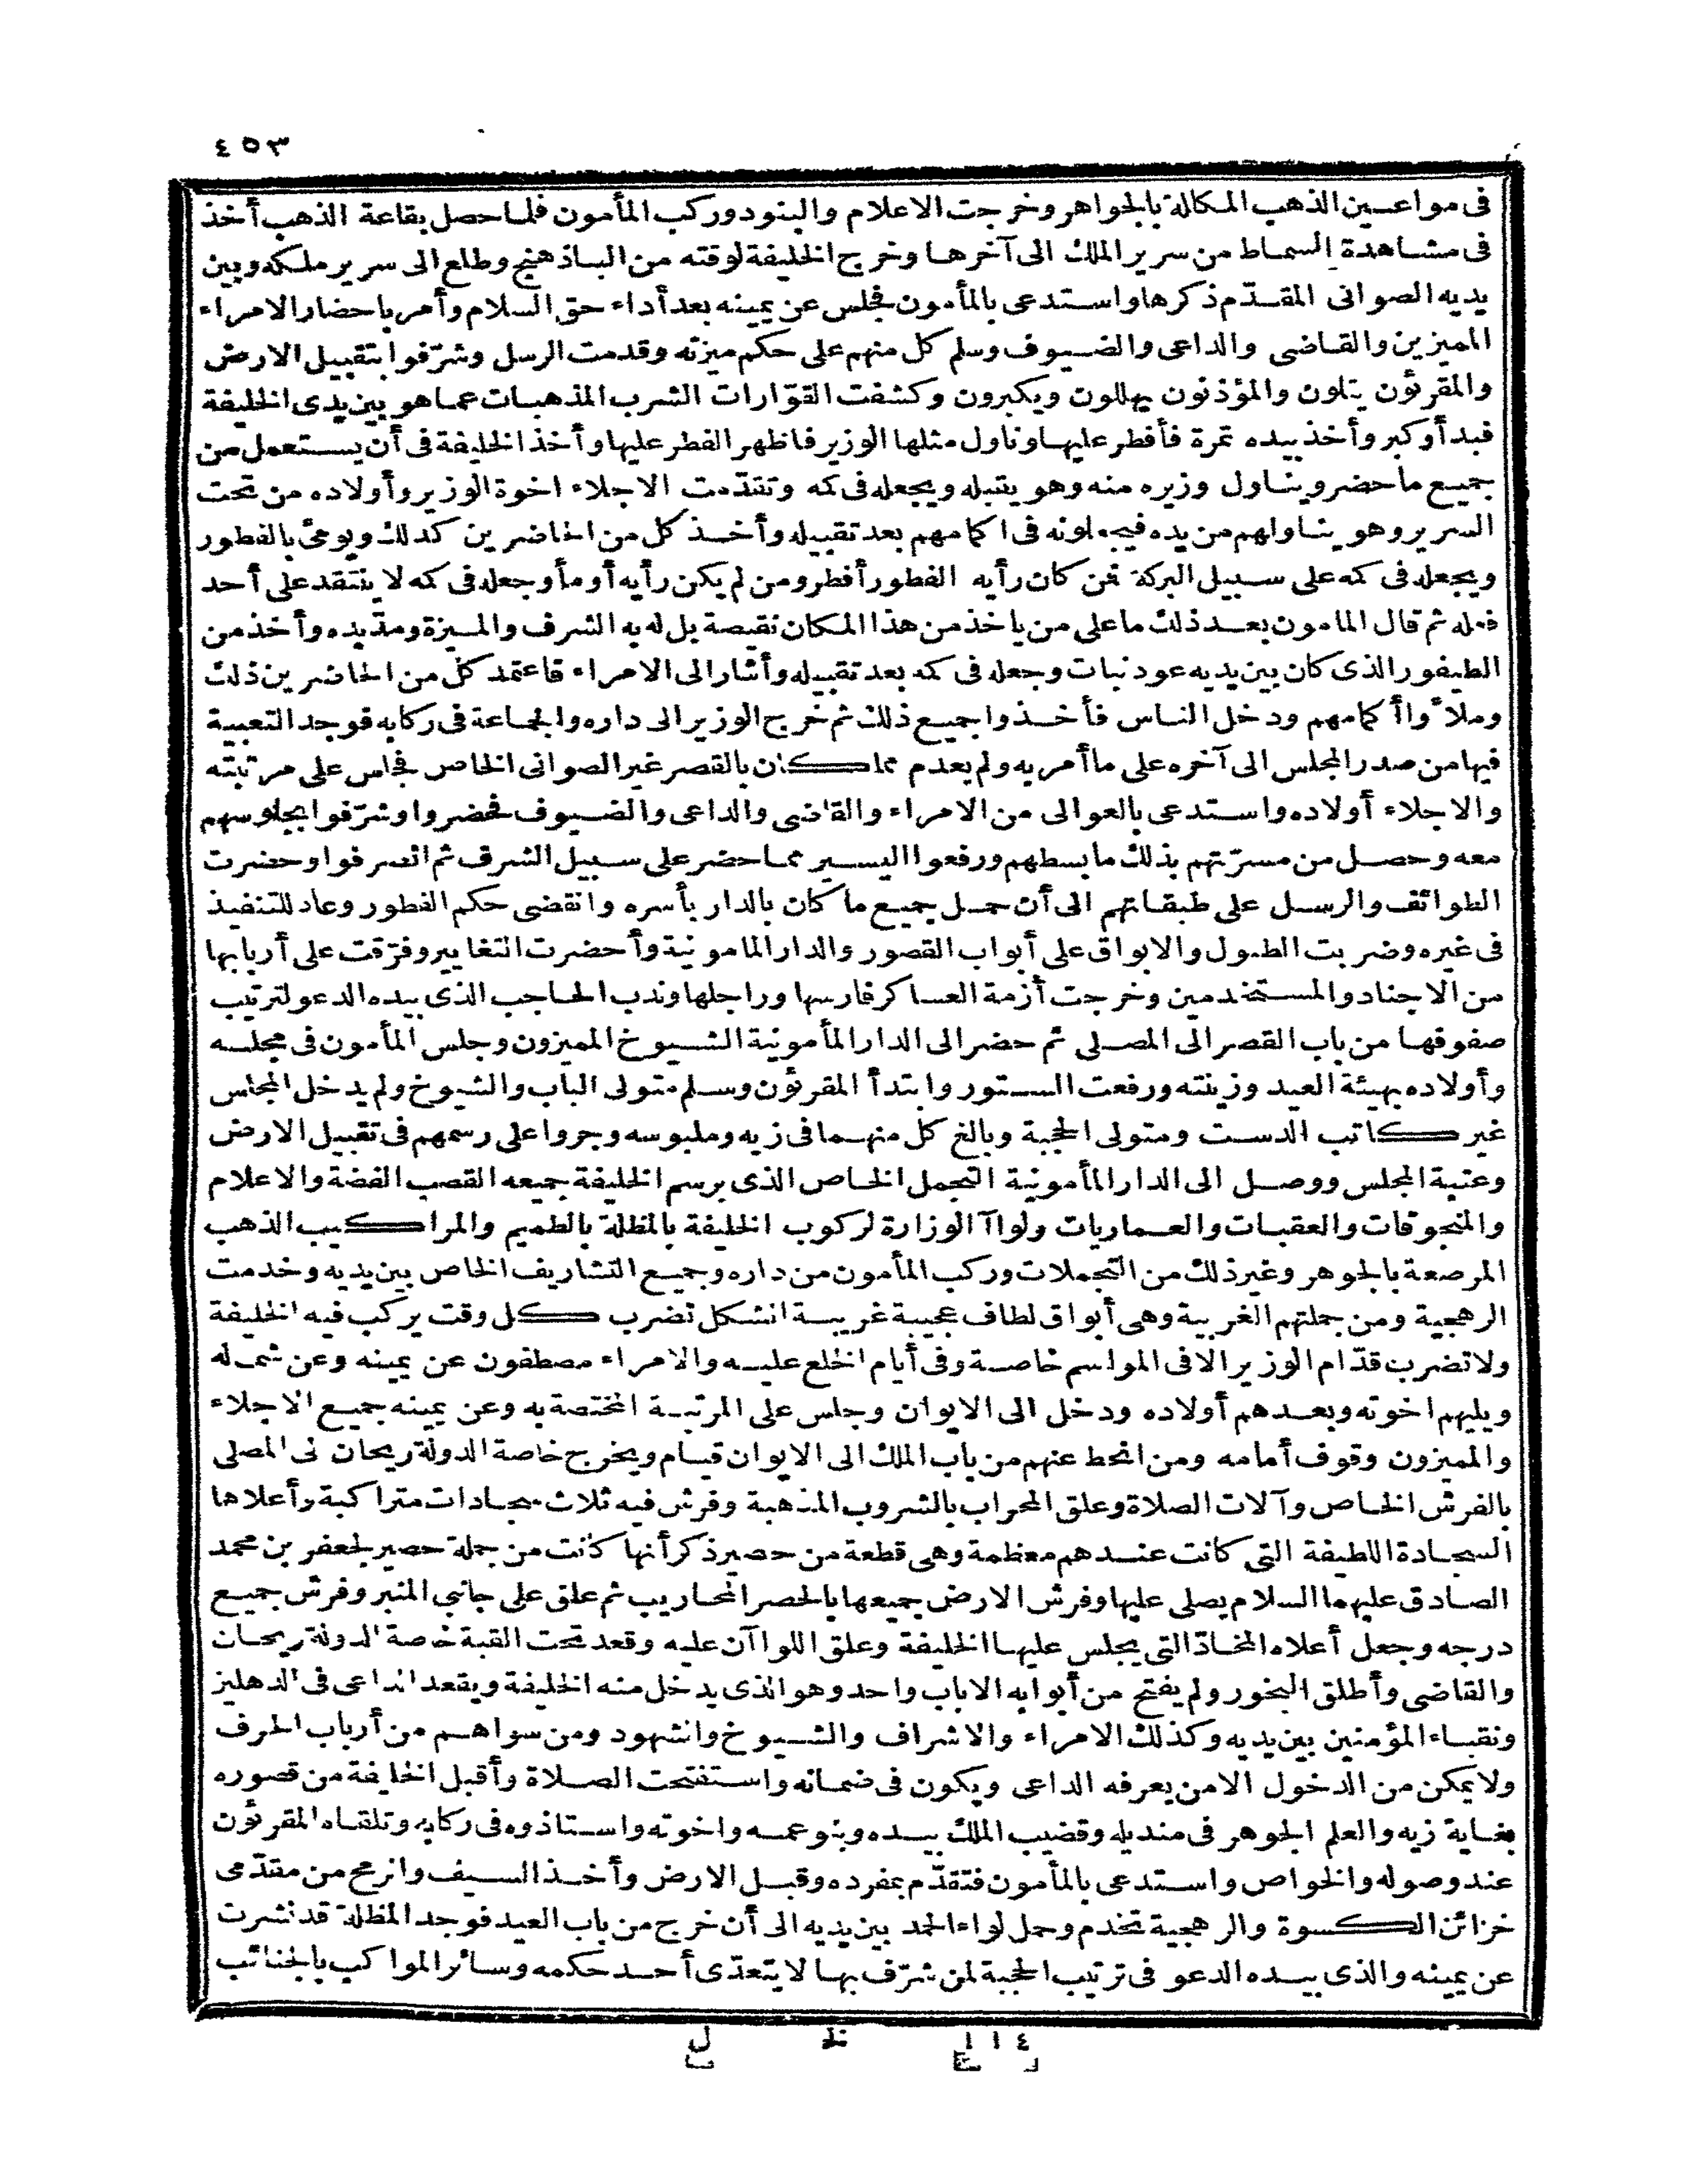 ٤٥٣
فى مواعين الذهب المكالة بالجواهر وخرجت الاعلام والبنود وركب المأمون فلما حصل بقاعة الذهب أخذ
فى مشاهدة السماط من سرير الملك الى آخرها وخرج الخليفة لوقته من الباذهنج وطلع الى سرير ملكه وبين
يديه الصوانى المقدّم ذكرها واستدعى بالمأمون فجلس عن يمينه بعد أداء حق السلام وأمر باحضار الامراء
المميزين والقاضى والداعى والضيوف وسلم كل منهم على حكم ميزته وقدمت الرسل وشرّفوا بتقبيل الارض
والمقرئون يتلون والمؤذنون يهللون ويكبرون وكشفت القوّارات الشرب المذهبات عما هو بين يدى الخليفة
فبدأ وكبر وأخذ بيده تمرة فأفطر عليها وناول مثلها الوزير فاظهر الفطر عليها وأخذ الخليفة فى أن يستعمل من
جميع ما حضر ويناول وزيره منه وهو يقبله ويجعله فى كمه وتقدّمت الاجلاء اخوة الوزير وأولاده من تحت
السرير وهو يناولهم من يده فيجعلونه فى اكمامهم بعد تقبيله وأخذ كل من الحاضرين كذلك ويومئ بالفطور
ويجعله فى كمه على سبيل البركة فمن كان رأيه الفطور أفطر ومن لم يكن رأيه أومأ وجعله فى كمه لا ينتقد على أحد
فعله ثم قال المامون بعد ذلك ما على من ياخذ من هذا المكان نقيصة بل له به الشرف والميزة ومدّ يده وأخذ من
الطيفور الذى كان بين يديه عود نبات وجعله فى كمه بعد تقبيله وأشار الى الامراء فاعتمد كل من الحاضرين ذلك
وملأوا أكمامهم ودخل الناس فأخذوا جميع ذلك ثم خرج الوزير الى داره والجماعة فى ركابه فوجد التعبية
فيها من صدر المجلس الى آخره على ما أمر به ولم يعدم مما كان بالقصر غير الصوانى الخاص فجلس على مرتبته
والاجلاء أولاده واستدعى بالعوالى من الامراء والقاضى والداعى والضيوف فحضروا وشرّفوا بجلوسهم
معه وحصل من مسرّتهم بذلك ما بسطهم ورفعوا اليسير مما حضر على سبيل الشرف ثم انصرفوا وحضرت
الطوائف والرسل على طبقاتهم الى أن حمل جميع ما كان بالدار بأسره وانقضى حكم الفطور وعاد للتنفيذ
فى غيره وضربت الطبول والابواق على أبواب القصور والدار المامونية وأحضرت التغايير وفرّقت على أربابها
من الاجناد والمستخدمين وخرجت أزمة العساكر فارسها وراجلها وندب الحاجب الذى بيده الدعو لترتيب
صفوفها من باب القصر الى المصلى ثم حضر الى الدار المأمونية الشيوخ المميزون وجلس المأمون فى مجلسه
وأولاده بهيئة العيد وزينته ورفعت الستور وابتدأ المقرئون وسلم متولى الباب والشيوخ ولم يدخل المجلس
غير كاتب الدست ومتولى الحجبة وبالغ كل منهما فى زيه وملبوسه وجروا على رسمهم فى تقبيل الارض
وعتبة المجلس ووصل الى الدار المأمونية التجمل الخاص الذى برسم الخليفة جميعه القصب الفضة والاعلام
والمنجوقات والعقبات والعماريات ولواآ الوزارة لركوب الخليفة بالمظلة بالطميم والمراكيب الذهب
المرصعة بالجوهر وغير ذلك من التجملات وركب المأمون من داره وجميع التشاريف الخاص بين يديه وخدمت
الرهجية ومن جملتهم الغربية وهى أبواق لطاف عجيبة غريبة الشكل تضرب كل وقت يركب فيه الخليفة
ولا تضرب قدّام الوزير الا فى المواسم خاصة وفى أيام الخلع عليه والامراء مصطفون عن يمينه وعن شماله
ويليهم اخوته وبعدهم أولاده ودخل الى الايوان وجلس على المرتبة المختصة به وعن يمينه جميع الاجلاء
والمميزون وقوف أمامه ومن انحط عنهم من باب الملك الى الايوان قيام ويخرج خاصة الدولة ريحان الى المصلى
بالفرش الخاص وآلات الصلاة وعلق المحراب بالشروب المذهبة وفرش فيه ثلاث سجادات متراكبة وأعلاها
السجادة اللطيفة التى كانت عندهم معظمة وهى قطعة من حصير ذكر أنها كانت من جملة حصير لجعفر بن محمد
الصادق عليهما السلام يصلى عليها وفرش الارض جميعها بالحصر المحاريب ثم علق على جانبى المنبر وفرش جميع
درجه وجعل أعلاه المخادّ التى يجلس عليها الخليفة وعلق اللواآن عليه وقعد تحت القبة خاصة الدولة ريحان
والقاضى وأطلق البخور ولم يفتح من أبوابه الا باب واحد وهو الذى يدخل منه الخليفة ويقعد الداعى فى الدهليز
ونقباء المؤمنين بين يديه وكذلك الامراء والاشراف والشيوخ والشهود ومن سواهم من أرباب الحرف
ولا يمكن من الدخول الا من يعرفه الداعى ويكون فى ضمانه واستفتحت الصلاة وأقبل الخليفة من قصوره
بغاية زيه والعلم الجوهر فى منديله وقضيب الملك بيده وبنو عمه واخوته واستاذوه فى ركابه وتلقاه المقرئون
عند وصوله والخواص واستدعى بالمأمون فتقدّم بمفرده وقبل الارض وأخذ السيف والرمح من مقدّمى
خزائن الكسوة والرهجية تخدم وحمل لواء الحمد بين يديه الى أن خرج من باب العيد فوجد المظلة قد نشرت
عن يمينه والذى بيده الدعو فى ترتيب الحجبة لمن شرّف بها لا يتعدّى أحد حكمه وسائر المواكب بالجنائب
١١٤ خط ل